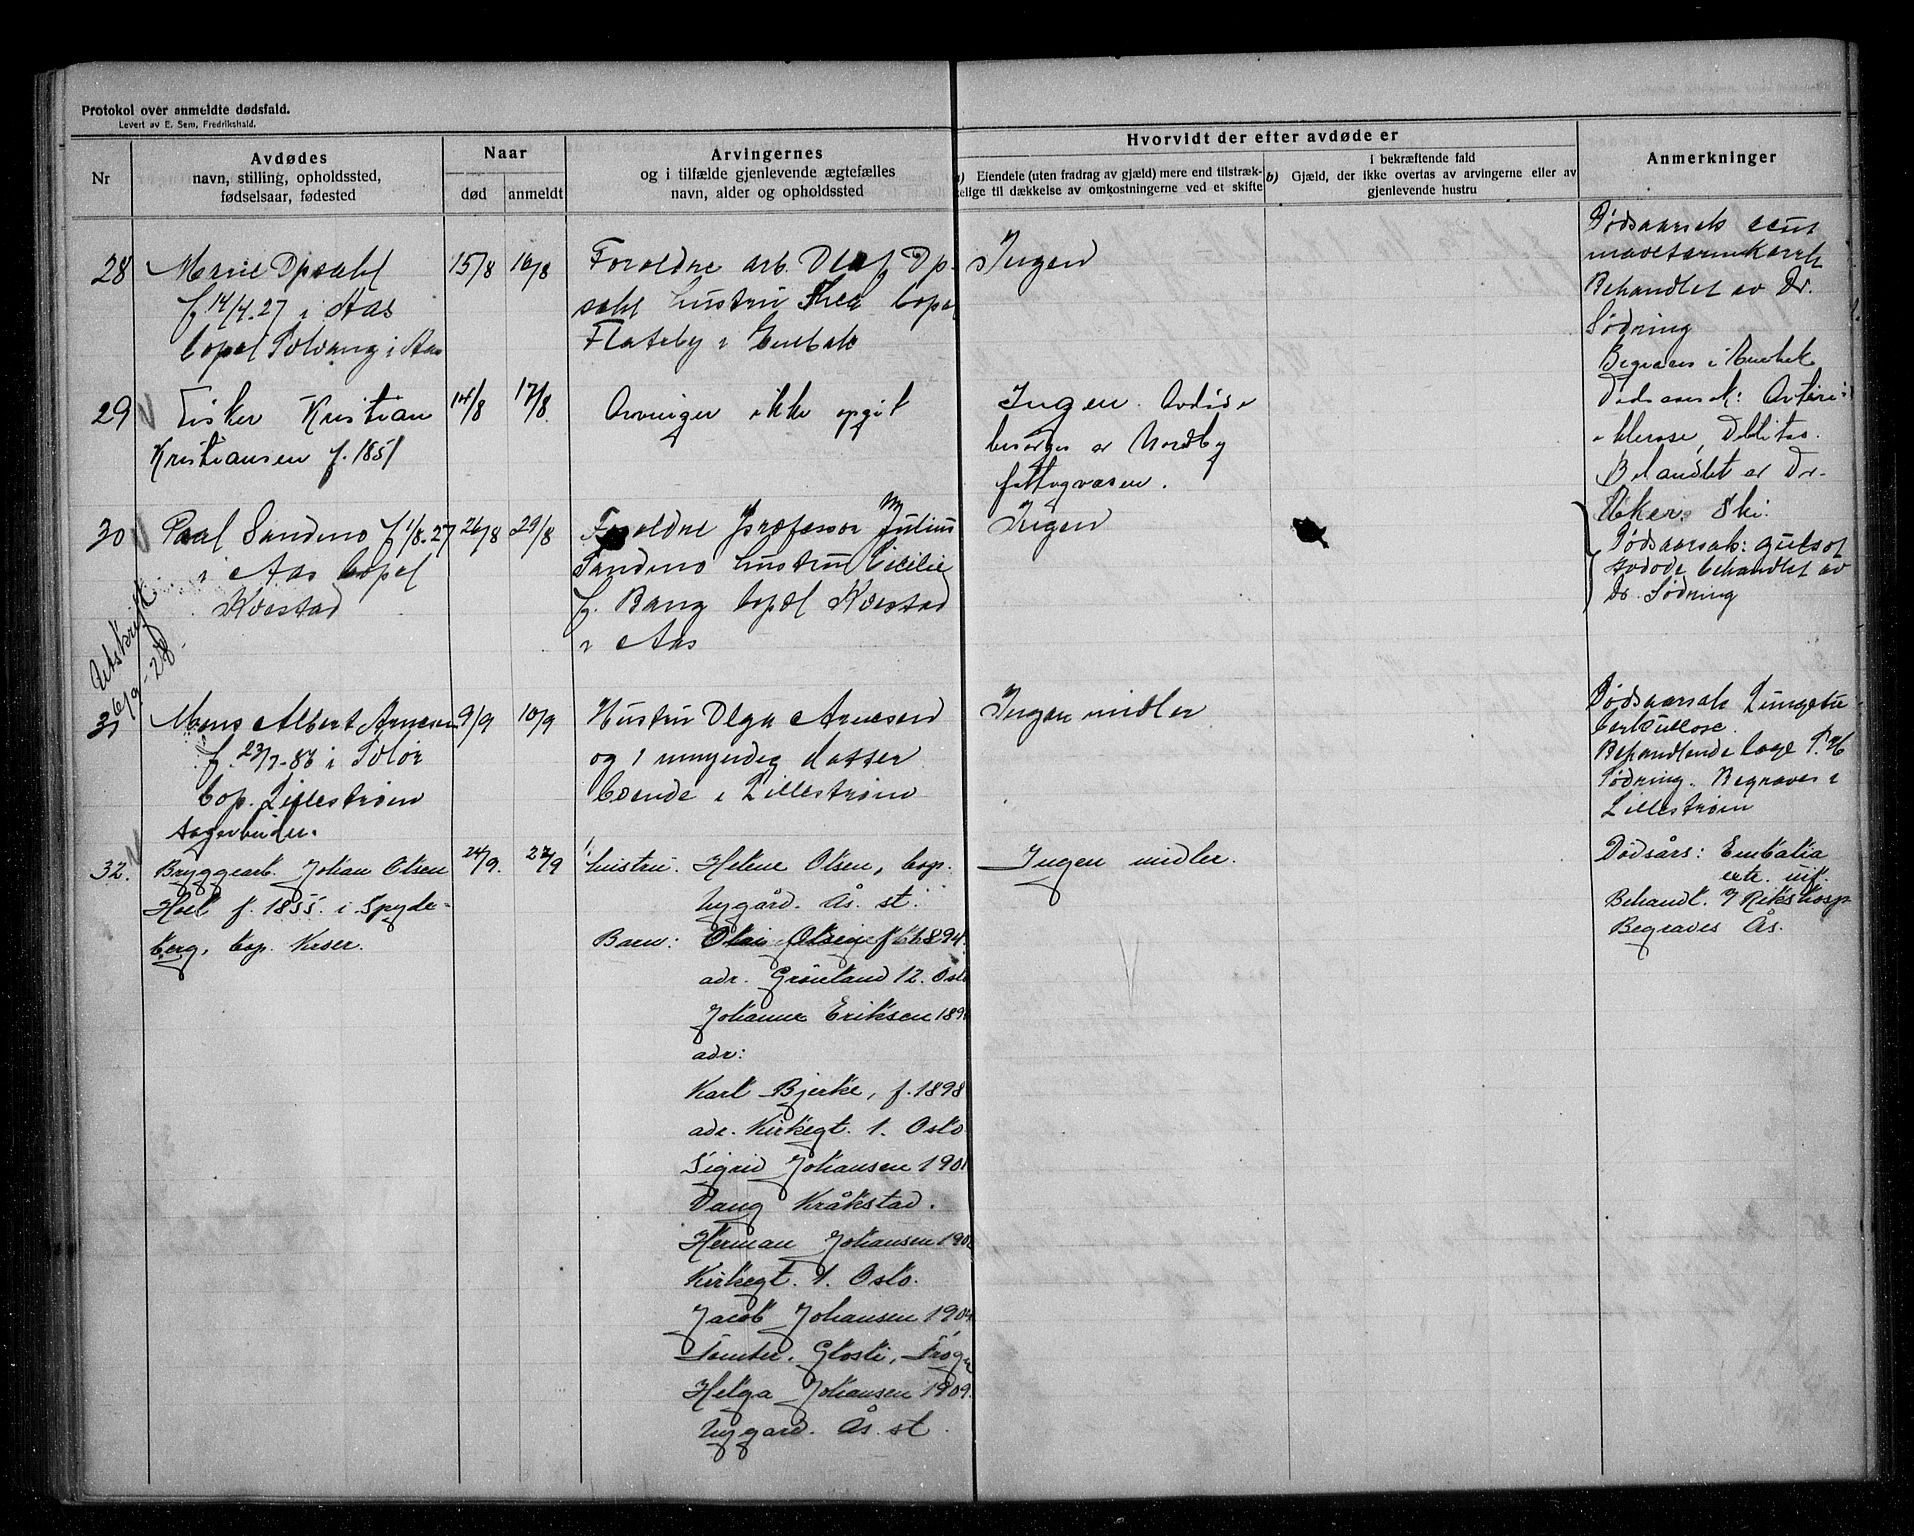 Protokol over anmeldte dødsfald.
Levert av E. Sem, Fredrikshald.
Nr
Avdødes
navn, stilling, opholdssted,
fødselsaar, fødested
Naar
død
anmeldt
Arvingernes
og i tilfælde gjenlevende ægtefælles
navn, alder og opholdssted
Hvorvidt der efter avdøde er
a) Eiendele (uten fradrag av gjæld) mere end tilstræk-
kelige til dækkelse av omkostningerne ved et skifte
i bekræftende fald
b) Gjæld, der ikke overtas av arvingerne eller av
gjenlevende hustru
Anmerkninger
28
Marie Opsahl
f 14/4.27 i Aas
bopel Solvang i Aas
15/8
16/8
Foreldre arb. Olaf Op-
sahl hustru Thea bopel
Flateby i Enebak
Ingen
Dødsaarsak acut
mavetarmkatarrh
Behandlet av Dr.
Sødring
Begraves i Enebak
29
Fisker Kristian
Kristiansen f. 1851
14/8
17/8.
Arvinger ikke opgit
Ingen. Avdøde
besørges av Nordby
fattigvæsen.
Dødsaarsak: Arterio-
sklerose, Debilitas.
Behandlet av Dr.
Aker, Ski.
30
Paal Sandmo f 1/8.27
i Aas bopel
Korstad
26/8
29/8
Foreldre Professor Julius
Sandmo hustru Cicilie
f. Bang bopæl Korstad
i Aas
Ingen
Dødsaarsak: gulsot
Avdøde behandlet av
Dr. Sødring
Utskrift
6/9-28.
31
Mons Albert Arnesen
f. 23/7-86 i Solør
bop. Lillestrøm
sagarbeider.
9/9
10/9
Hustru Olga Arnesen
og 1 umyndig datter
boende i Lillestrøm
Ingen midler
Dødsaarsak Lungetu-
berkullose.
Behandlende læge P. M
Sødring. Begraves i
Lillestrøm
32.
Bryggearb. Johan Olsen
Hoel f. 1855. i Spyde-
berg, bop. Kroer.
24/9.
27/9
hustru. Helene Olsen, bop.
Nygård. Ås. st.
Barn: Olai Olsen f 1894.
adr. Grønland 12. Oslo
Johanne Eriksen 189
adr:
Karl Bjerke, f. 1898
adr. Kirkegt. 1. Oslo
Sigrid Johansen 1901
Vang Kråkstad.
Herman Johansen 190
Kirkegt. 1. Oslo.
Jacob Johansen 1904
Tomter. Glosli,
Helga Johansen 1909.
Nygård. Ås. st.
Ingen midler.
Dødsårs: Embolia
Behandl. Rikshosp
Begraves Ås.